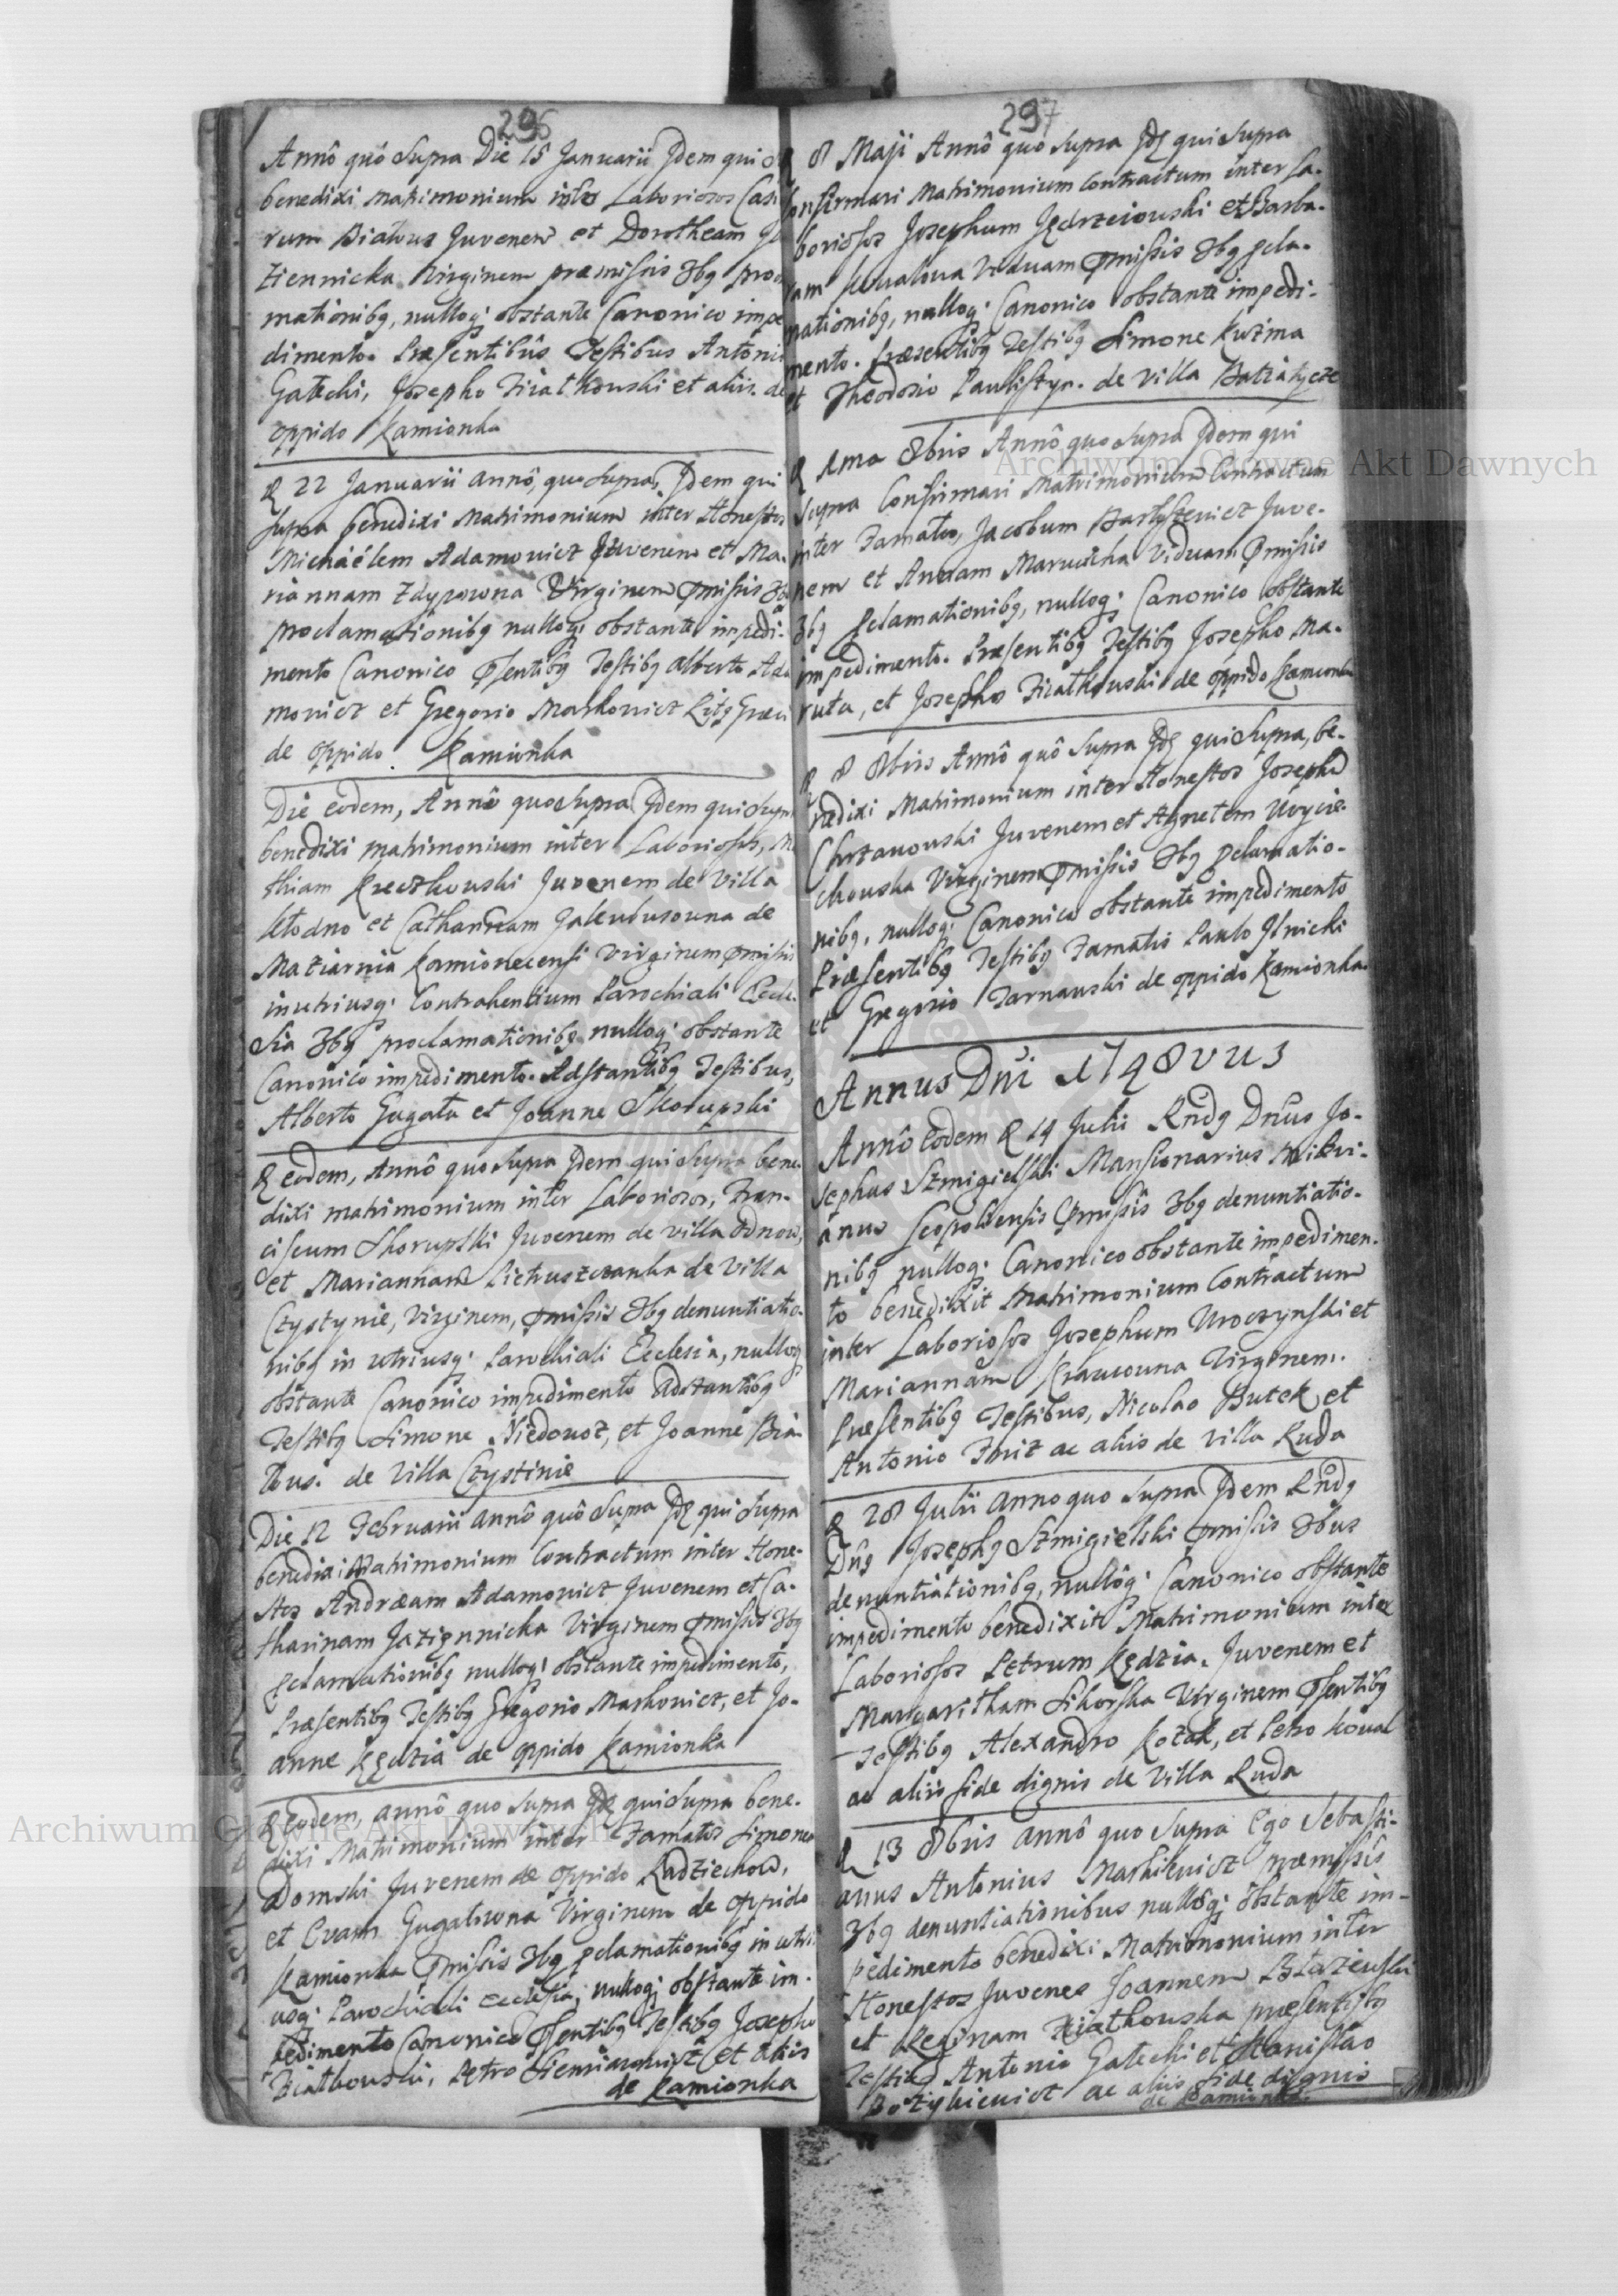 296
Annô quô Supra Die 15 Januarii Jdem qui
benedixi matrimonium inter Laboriosos Casi
rum Białous Juvenem et Dorotheam
ziennicka Virginem præmissis 3bꝗ
mationibꝗ, nulloqꝫ obstante Canonico impe
dimento. Præsentibus Testibus Antonio
Gałecki, Josepho Fiiałkouski et aliis. de
oppido Kamionka
22 Januarii annô, quo supra, Jdem qui
supra benedixi Matrimonium inter Honestos
Michaëlem Adamowicz Juvenem et Ma-
riannam Zdyrowna Virginem pmissis 3bꝗ
proclamationibꝗ nulloqꝫ obstante impedi-
mento Canonico psentibꝗ Testibꝗ Alberto Ada
mowicz et Gregorio Markowicz
de oppido. Kamionka
Die eodem, Annô quo supra Jdem qui supra
benedixi matrimonium inter Laboriosos, M
thiam Kreczkouski Juvenem de Villa
et Catharinam de
Maziarnia Kamionecensi Virginem pmissis
in utriusqꝫ Contrahentium Parochiali Eccle-
sia 3bꝗ proclamationibꝗ nulloqꝫ obstante
Canonico impedimento. Adstantibꝗ Testibus,
Alberto Gugała et Joanne Skorupski
eodem, Annô quo supra Jdem qui supra bene-
dixi matrimonium inter Laboriosos, Fran-
ciscum Skorupski Juvenem de villa
et Mariannam Pietruszczanka de Villa
Czystynie, Virginem, pmissis 3bꝗ denuntiatio-
nibꝗ in utriusqꝫ Parochiali Ecclesia, nulloqꝫ
obstante Canonico impedimento Adstantibꝗ
Testibꝗ Simone Niedouoz, et Joanne Bia
łous. de Villa Czystinie
Die 12 Februarii annô quô Supra Jdꝫ qui Supra
benedixi Matrimonium Contractum inter Hone-
stos Andræam Adamowicz Juvenem et Ca-
tharinam Jaziennicka Virginem pmissis 3bꝗ
pclamationibꝗ nulloqꝫ obstante impedimento,
Præsentibꝗ Testibꝗ Gregorio Markowicz, et Jo-
anne Kędzia de oppido Kamionka
Eodem, annô quo supra Jdꝫ qui supra bene-
dixi Matrimonium inter Famatos Simonem
Domski Juvenem de oppido Radziechow,
et Evam Gugałowna Virginem de oppido
Kamionka pmissis 3bꝗ pclamationibꝗ in utri
usqꝫ Parochiali Ecclesia, nulloqꝫ obstante im-
pedimento Canonico psentibꝗ Testibꝗ Josepho
Fiiałkouski, Petro et aliis
de Kamionka
297
8 Maji Annô quo supra Jdꝫ qui supra
Confirmavi Matrimonium Contractum inter La-
boriosos Josephum Jędrzeiouski et Barba-
ram Kowalowa Viduam pmissis 3bꝗ pcla-
mationibꝗ, nulloqꝫ Canonico obstante impedi-
mento. Præsentibꝗ Testibꝗ Simone Kuzma
et Theodosio de Villa Batiatycze
1ma 8bris Annô quo supra Jdem qui
supra Confirmavi Matrimonium Contractum
inter Famatos, Jacobum Bartyszewicz Juve-
nem et Annam Marucicha Viduam pmissis
3bꝗ pclamationibꝗ, nulloqꝫ Canonico obstante
impedimento. Præsentibꝗ Testibꝗ Josepho Ma-
ruta, et Josepho Fiiałkouski de oppido Kamionka
8 8bris Annô quô Supra Jdꝫ qui Supra, be-
nedixi Matrimonium inter Honestos Josephum
Chrzanouski Juvenem et Agnetem Woycie-
chouska Virginem pmissis 3bꝗ pclamatio-
nibꝗ, nulloqꝫ Canonico obstante impedimento
Præsentibꝗ Testibꝗ Famatis Paulo Jlnicki
et Gregorio Tarnauski de oppido Kamionka.
Annus Dni 1748vus
Annô eodem 14 Julii Rndꝗ Dnus Jo-
sephus Szmigielski Mansionarius
anus Leopoliensis pmissis 3bꝗ denuntiatio-
nibꝗ nulloqꝫ Canonico obstante impedimen-
to benedixit Matrimonium Contractum
inter Laboriosos Josephum Uroczynski et
Mariannam Krawcouna Virginem.
Præsentibꝗ Testibus, Nicolao Butek et
Antonio ac aliis de Villa Ruda
28 Julii anno quo supra Jdem Rndꝗ
Dnꝗ Josephꝗ Szmigielski pmissis 3bus
denuntiationibꝗ, nulloqꝫ Canonico obstante
impedimento benedixit Matrimonium inter
Laboriosos Petrum Kędzia, Juvenem et
Margaritham Sikorska Virginem psentibꝗ
Testibꝗ Alexandro Kozak, et Petro Koval
ac aliis fide dignis de Villa Ruda
13 8bris annô quo supra Ego Sebasti-
anus Antonius Maskiewicz præmissis
3bꝗ denuntiationibus nulloqꝫ obstante im-
pedimento benedixi Matrimonium inter
Honestos Juvenes Joannem Błażeuski
et Reginam Fiiałkouska præsentibꝗ
Testibꝗ Antonio Gałecki et Stanislao
Bożykiewicz ac aliis fide dignis
de Kamionka.
Archiwum Główne Akt Dawnych
Archiwum Główne Akt Dawnych